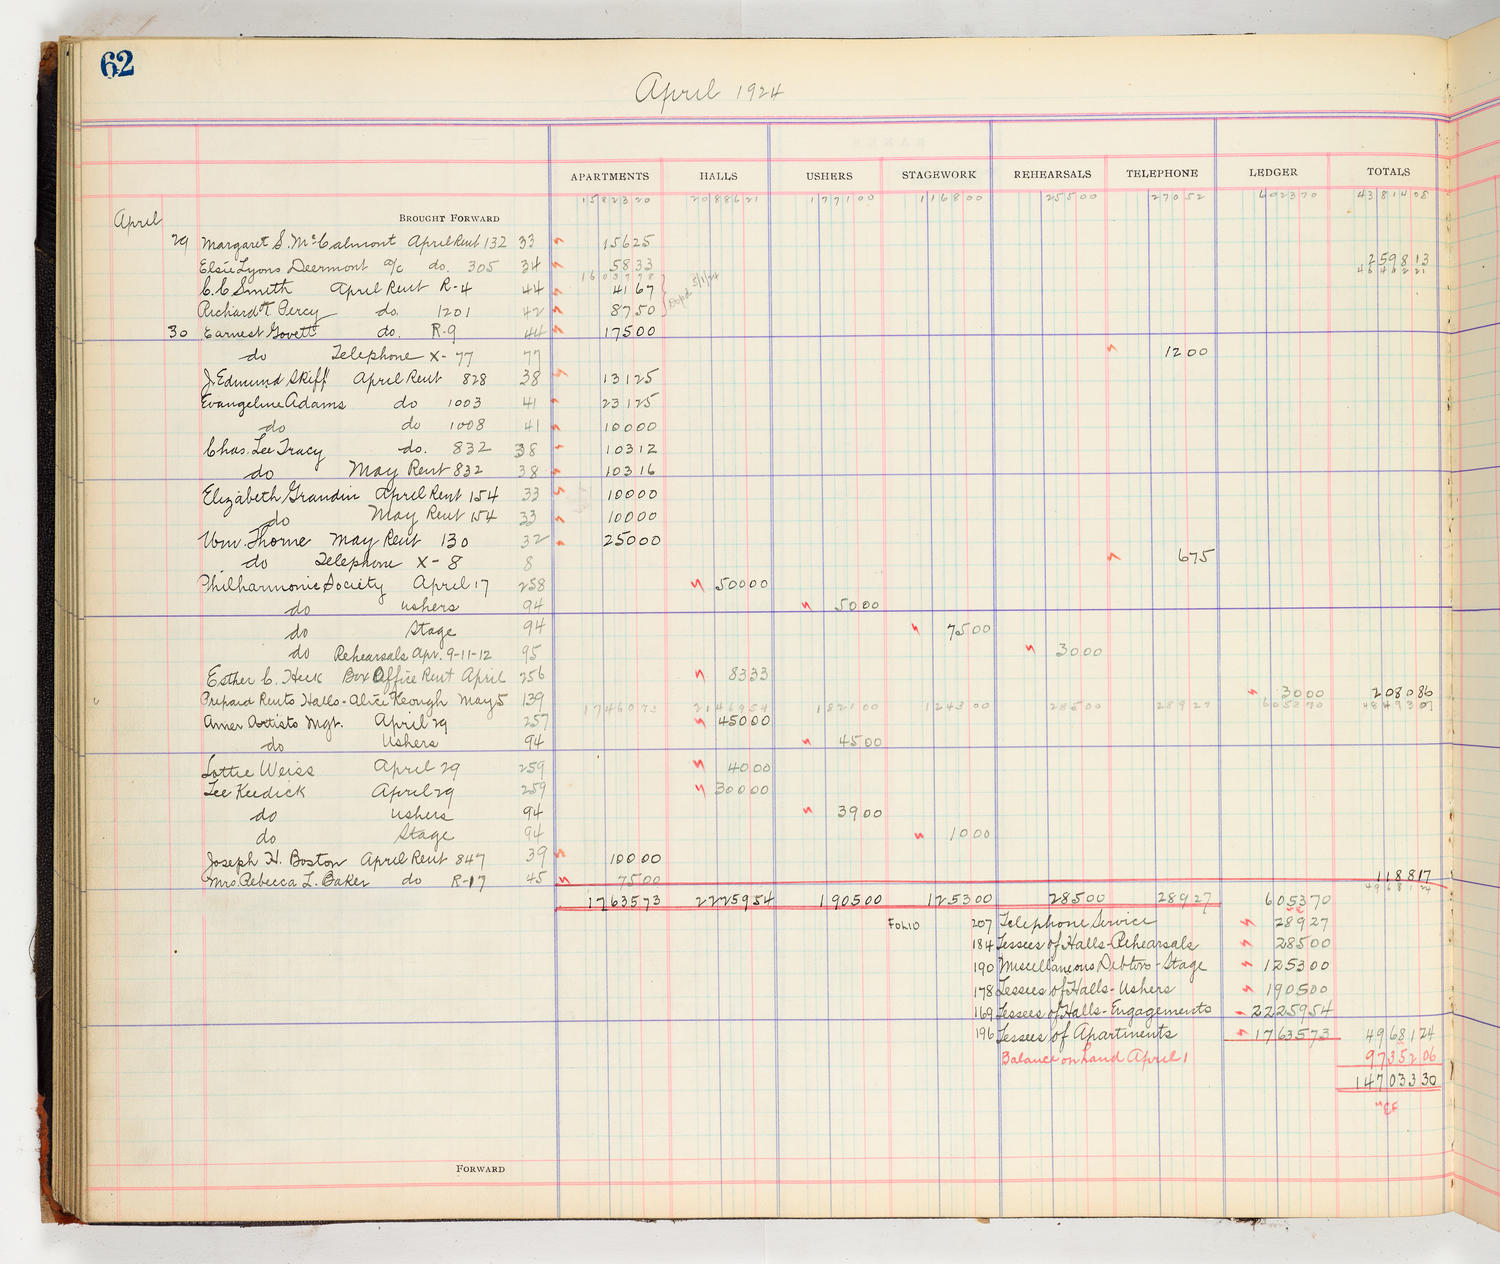 62
April 1924
APARTMENTS HALLS USHERS STAGEWORK REHEARSALS TELEPHONE LEDGER TOTALS
1582320 2088621 177100 116800 25500 27052 602370 4381405
April BROUGHT FORWARD
29 Margaret S. McCalmont April Rent 132 33 15625
Elsie Lyons Deermont a/c do. 305 34 5833 259813
1603778 4641221
C.C Smith April Rent R-4 44 4167 Depd 5/1/24
Richard T Percy do. 1201 42 8750
30 Earnest Govett do. R-9 44 17500
do Telephone X-77 77 1200
J. Edmund Skiff April Rent 828 38 13125
Evangeline Adams do 1003 41 23125
do do 1008 41 10000
Chas. Lee Tracy do. 832 38 10312
do May Rent 832 38 10316
Elizabeth Grandin April Rent 154 33 10000
do May Rent 154 33 10000
Wm. Thorne May Rent 130 32 25000
do Telephone X-8 8 675
Philharmonic Society April 17 258 50000
do ushers 94 5000
do Stage 94 7500
do Rehearsals Apr. 9-11-12 95 3000
Esther C. Heck Box Office Rent April 256 8333
Prepaid Rents Halls-Alice Keough May 5 139 3000 208086
1746073 2146954 182100 124300 28500 28927 605370 4849307
Amer Artists Mgt. April 29 257 45000
do Ushers 94 4500
Lottie Weiss April 29 259 4000
Lee Keedick April 29 259 30000
do Ushers 94 3900
do Stage 94 1000
Joseph H. Boston April Rent 847 39 10000
Mrs. Rebecca L. Baker do R-17 45 7500 118817
4968124
1763573 2225954 190500 125300 28500 28927 605370
FOLIO 207 Telephone Service 28927
184 Lessees of Halls-Rehearsals 28500
190 Miscellaneous Debtors-Stage 125300
178 Lessees of Halls-Ushers 190500
169 Lessees of Halls-Engagements 2225954
196 Lessees of Apartments 1763573 4968124
Balance on hand April 1 9735206
14703330
FORWARD